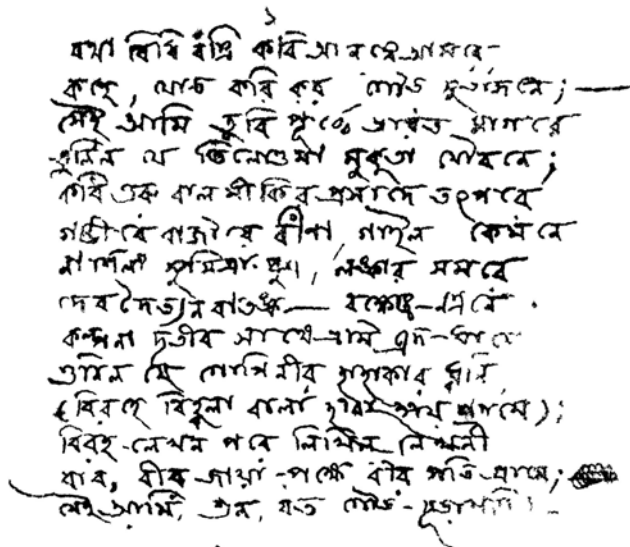 ১
যথা বিধি বন্দি কবি আনন্দে আসরে
কহে, যোড় করি কর গৌড় সুভাজনে; —
সেই আমি ডুবি পূর্ব্বে ভারত সাগরে
তুলিল যে তিলোত্তমা মুকুতা যৌবনে;
কবি গুরু বাল্মীকির প্রসাদে তৎপরে
গম্ভীরে বাজায়ে বীণা, গাইল কেমনে
নাশিলা সুমিত্রা-পুত্র, লঙ্কার সমরে
দেব দৈত্য নরাতঙ্ক — রক্ষেন্দ্র-নন্দনে
কল্পনা দূতীর সাথে ভ্রমি ব্রজ-ধামে
শুনিল যে গোপিনীর হাহাকার ধ্বনি,
(বিরহে বিহ্বলা বালা হারা হয়ে শ্যামে);
বিরহ-লেখন পরে লিখিল লেখনী
যার, বীর জায়া-পক্ষে বীর পতি-গ্রামে;
সেই আমি, শুন, যত গৌড়-চূড়ামণি!